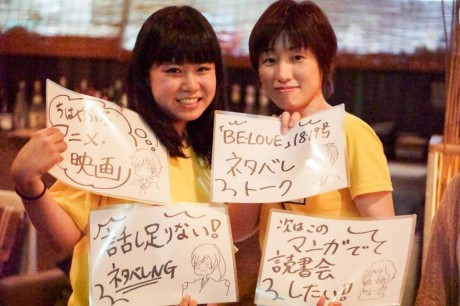 ちはやふる
アニメ・
映画り
「BE・LOVE」18・19号
ネタバレ
トーク
話し足りない!
ネタバレNG
次はこの
マンガでで
読書会
したい!!